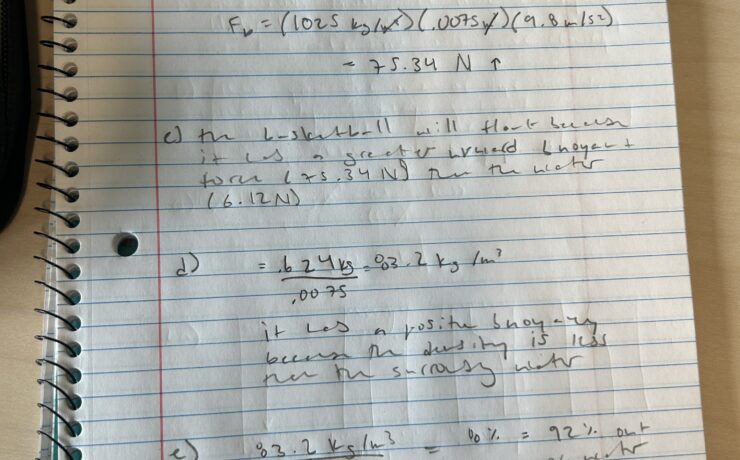 F_b = (1025 kg/m³)(.0075m³)(9.8m/s²)
= 75.34 N ↑
c) the basketball will float because
it has a greater upward buoyant
force (75.34N) than the water
(6.12N)
d) = .624kg = 83.2 kg/m³
.0075
it has a positive buoyancy
because the density is less
than the surrounding water
e) 83.2 kg/m³ = % = 92% out
water